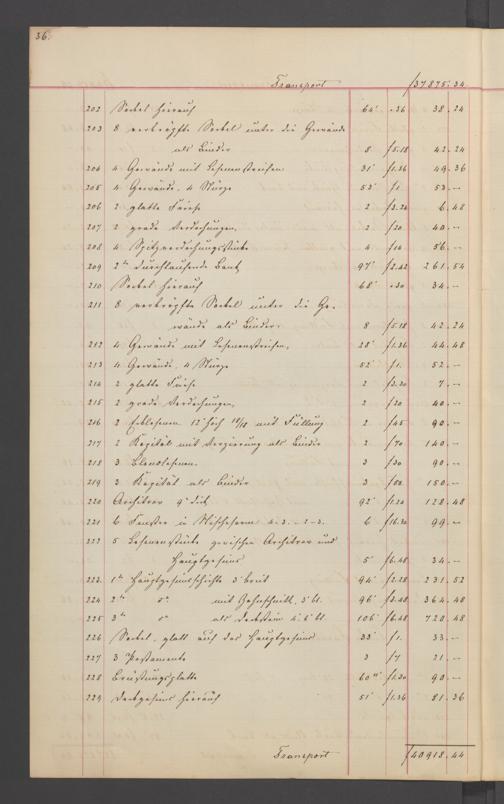 36.
Transport f 37875. 34
202 Sockel hierauf 64' -.36 38. 24
203 8 verkröpfte Sockel unter die Gewände
als Binder 8 f 5.18 42. 24
204 4 Gewände mit Lesenenstreifen 31' f 1.36 49. 36
205 4 Gewände, 4 Stürze 53' f 1. 53. --
206 2 glatte Friese 2 f 3.24 6. 48
207 2 grade Verdachungen. 2 f 20 40. --
208 4 Spitzverdachungsstücke 4 f 14 56. --
209 2te durchlaufende Bank 97' f 2.42 261. 54
210 Sockel hierauf 68' -.30 34. --
211 8 verkröpfte Sockel unter die Ge-
wände als Binder. 8 f 5.18 42. 24
212 4 Gewände mit Lesenenstreifen. 28' f 1.36 44. 48
213 4 Gewände, 4 Stürze 52' f 1. 52. --
214 2 glatte Friese 2 f 3.30 7. --
215 2 grade Verdachungen. 2 f 20 40. --
216 2 Ecklesenen 12' hoch mit Füllung 2 f 45 90. --
217 2 Kapitäl mit Verzierung als Binder 2 f 70 140. --
218 3 Blendlesenen. 3 f 30 90. --
219 3 Kapitäl als Binder 3 f 50 150. --
220 Architrav 9" dick 92' f 1.24 128. 48
221 6 Fenster in Nischeform 4.3. - 2-3. 6 f 16.30 99. --
222 5 Lesenenstücke zwischen Architrav und
Hauptgesims 5' f 6.48 34. --
223. 1te Hauptgesimsschichte 3' breit 94' f 2.28 231. 52
224 2te do mit Zahnschnitt, 3' bt. 96' f 3.48 364. 48
225 3te do als Deckstein 4.5' bt. 106' f 6.48 720. 48
226 Sockel, glatt auf das Hauptgesims 33' f 1. 33. --
227 3 Postamente 3 f 7 21. --
228 Brüstungsplatte 60□' f 1.30 90. --
229 Deckgesims hierauf 51' f 1.36 81. 36
Transport f 40918. 44